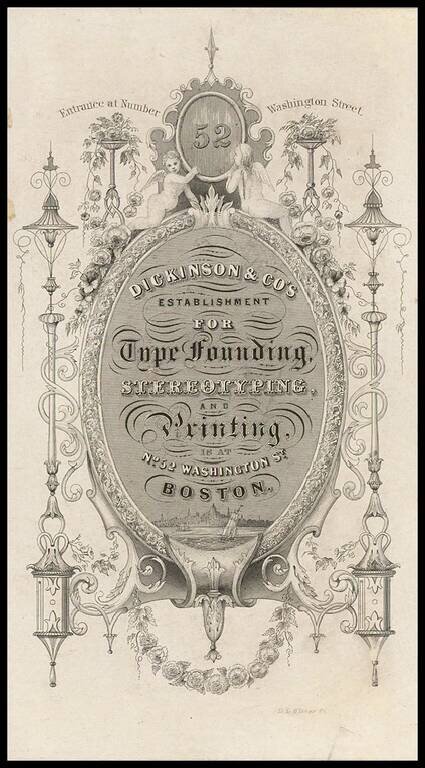 Entrance at Number
52
Washington Street.
DICKINSON & CO'S
ESTABLISHMENT
FOR
Type Founding,
STEREOTYPING,
AND
Printing,
IS AT
No. 52 WASHINGTON ST.
BOSTON.